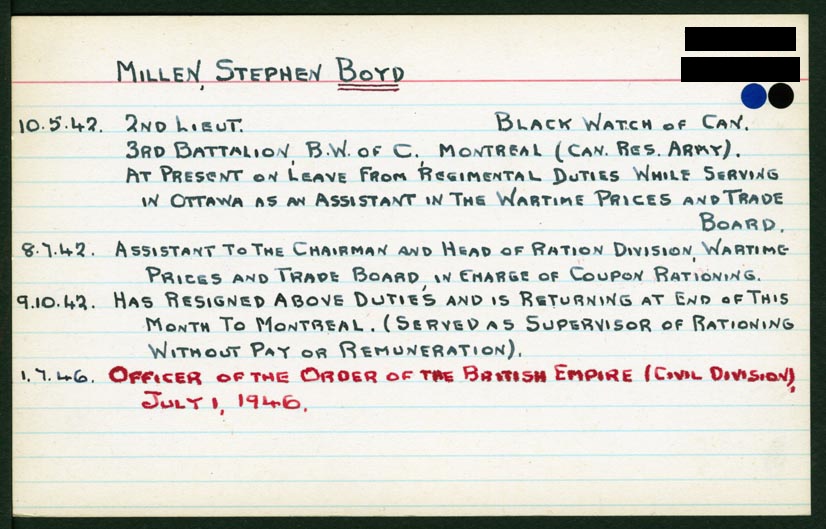 MILLEN, STEPHEN BOYD
10.5.42. 2ND LIEUT. BLACK WATCH OF CAN.
3RD BATTALION, B.W. OF C., MONTREAL (CAN. RES. ARMY).
AT PRESENT ON LEAVE FROM REGIMENTAL DUTIES WHILE SERVING
IN OTTAWA AS AN ASSISTANT IN THE WARTIME PRICES AND TRADE
BOARD.
8.7.42. ASSISTANT TO THE CHAIRMAN AND HEAD OF RATION DIVISION, WARTIME
PRICES AND TRADE BOARD, IN CHARGE OF COUPON RATIONING.
9.10.42. HAS RESIGNED ABOVE DUTIES AND IS RETURNING AT END OF THIS
MONTH TO MONTREAL. (SERVED AS SUPERVISOR OF RATIONING
WITHOUT PAY OR REMUNERATION).
1.7.46. OFFICER OF THE ORDER OF THE BRITISH EMPIRE (CIVIL DIVISION),
JULY 1, 1946.